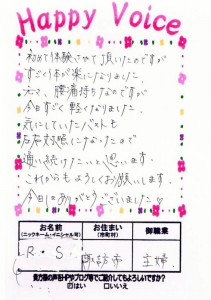 Happy Voice
初めて体験させて頂いたのですが
すごく体が楽になりました。
元々、腰痛持ちなのですが
今日すごく軽くなりました。
気にしていたバストも
左右対称になったので
通い続けたいと思います。
これからもよろしくお願いします
今日はありがとうございました
お名前
(ニックネーム・イニシャル可)
お住まい
(市町村)
御職業
R・S
諏訪市
主婦
貴方様の声をHPやブログ等でご紹介してもよろしいですか?
☑はい □いいえ